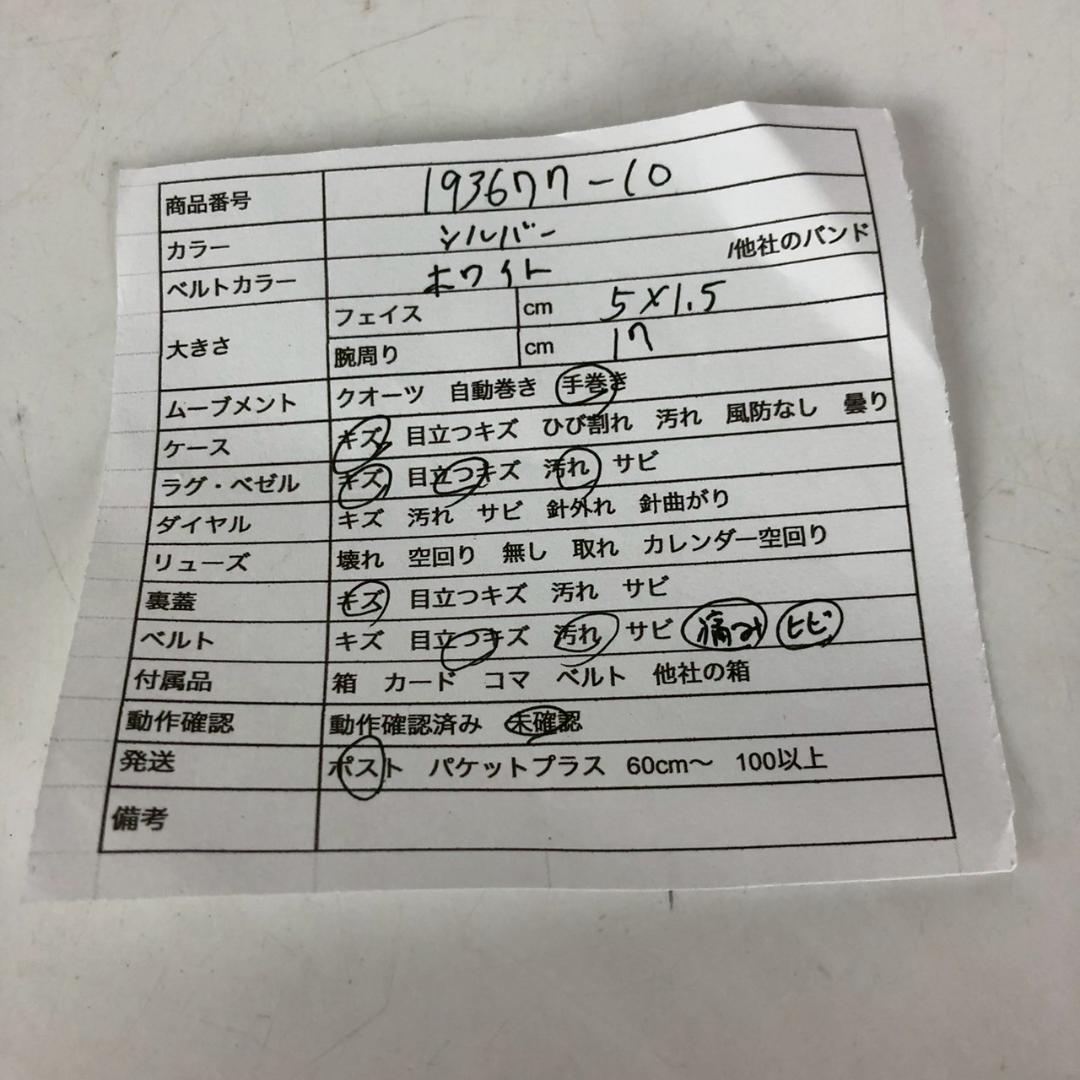 商品番号 193677-10
カラー シルバー
ベルトカラー ホワイト /他社のバンド
大きさ フェイス cm 5×1.5
腕周り cm 17
ムーブメント クオーツ 自動巻き 手巻き
ケース キズ 目立つキズ ひび割れ 汚れ 風防なし 曇り
ラグ・ベゼル キズ 目立つキズ 汚れ サビ
ダイヤル キズ 汚れ サビ 針外れ 針曲がり
リューズ 壊れ 空回り 無し 取れ カレンダー空回り
裏蓋 キズ 目立つキズ 汚れ サビ
ベルト キズ 目立つキズ 汚れ サビ 痛み ヒビ
付属品 箱 カード コマ ベルト 他社の箱
動作確認 動作確認済み 未確認
発送 ポスト パケットプラス 60cm～ 100以上
備考